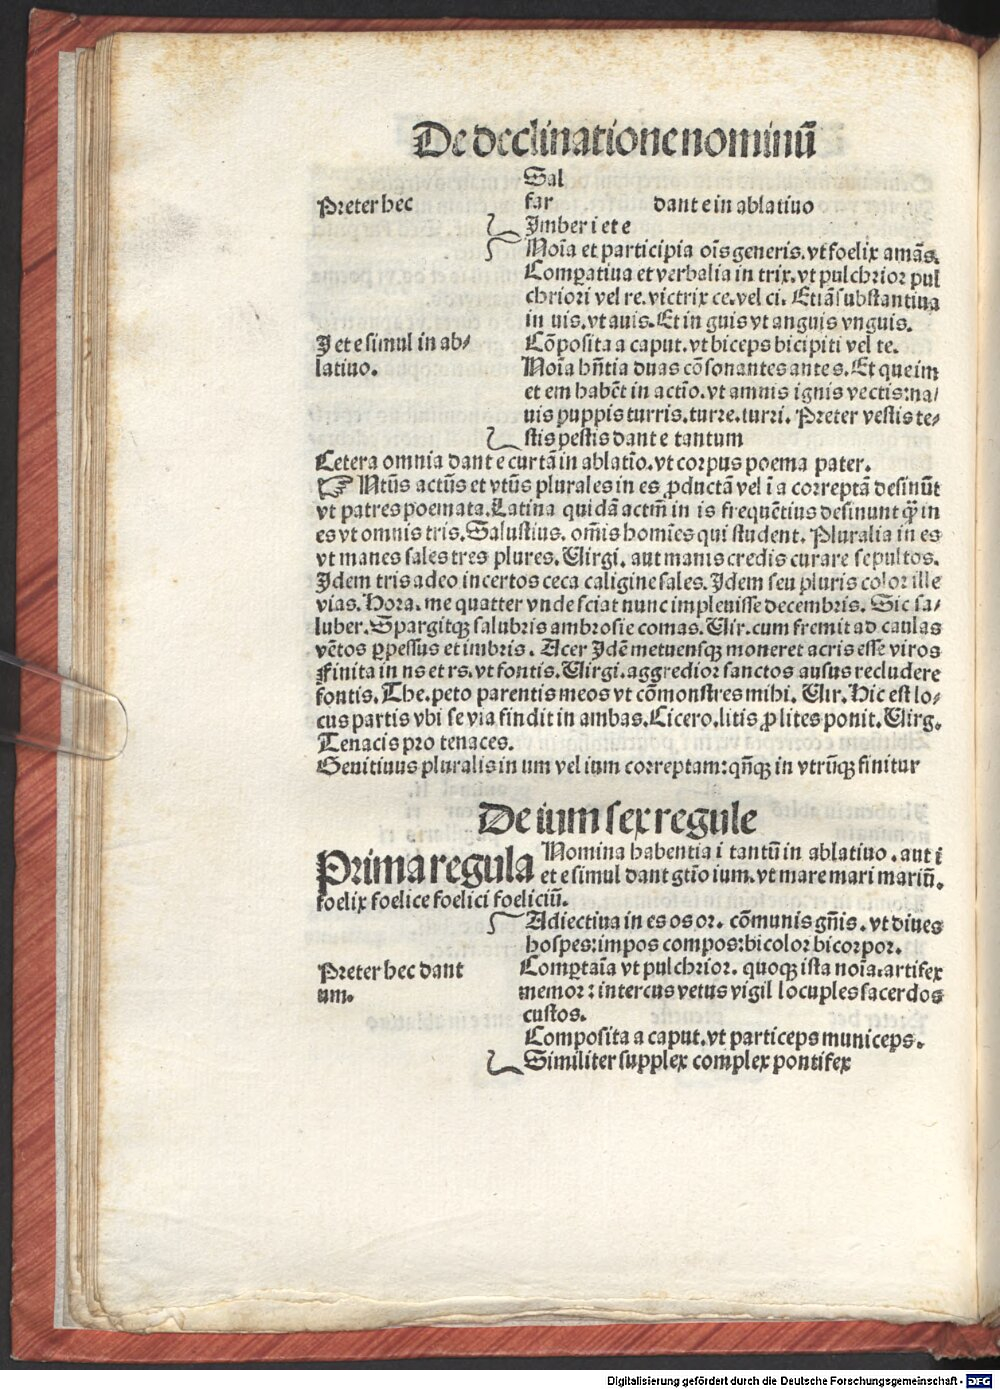 De declinatione nominū
Sal
Preter hec far dant e in ablatiuo
Imber i et e
Noīa et participia oīs generis. vt foelix amās.
Compatiua et verbalia in trix. vt pulchrior pul
chriori vel re. victrix ce. vel ci. Etiā substantiua
in uis. vt auis. Et in guis vt anguis vnguis.
I et e simul in ab/
latiuo.
Cōposita a caput. vt biceps bicipiti vel te.
Noīa hn̄tia duas cōsonantes ante s. Et que im
et em habēt in actīo. vt amnis ignis vectis: na/
uis puppis turris. turre. turri. Preter vestis te/
stis pestis dant e tantum
Cetera omnia dant e curtā in ablatīo. vt corpus poema pater.
☞ Ntūs actūs et vtūs plurales in es ꝓductā vel ī a correptā desinūt
vt patres poemata. Latina quidā actm̄ in is frequētius desinunt q̄ȝ in
es vt omnis tris. Salustius. om̄is homīes qui student. Pluralia in es
vt manes sales tres plures. Uirgi. aut manis credis curare sepultos.
Idem tris adeo incertos ceca caligine sales. Idem seu pluris color ille
vias. Hora. me quatter vnde sciat nunc impleuisse decembris. Sic sa/
luber. Spargitqȝ salubris ambrosie comas. Uir. cum fremit ad caulas
vētos ꝑpessus et imbris. Acer Idē metuensqȝ moneret acris esse viros
Finita in ns et rs. vt fontis. Uirgi. aggredior sanctos ausus recludere
fontis. The. peto parentis meos vt cōmonstres mihi. Uir. Hic est lo/
cus partis vbi se via findit in ambas. Cicero. litis ꝓ lites ponit. Uirg.
Tenacis pro tenaces.
Genitiuus pluralis in um vel ium correptam: qn̄qȝ in vtrūqȝ finitur
De ium sex regule
Prima regula Nomina habentia i tantū in ablatiuo. aut ī
et e simul dant gtīo ium. vt mare mari mariū.
foelix foelice foelici foeliciū.
Adiectiua in es os or. cōmunis gn̄is. vt diues
hospes: impos compos: bicolor bicorpor.
Preter hec dant
um.
Comꝑtaīa vt pulchrior. quoqȝ ista noīa. artifex
memor: intercus vetus vigil locuples sacerdos
custos.
Composita a caput. vt particeps municeps.
Similiter supplex complex pontifex
Digitalisierung gefördert durch die Deutsche Forschungsgemeinschaft - DFG